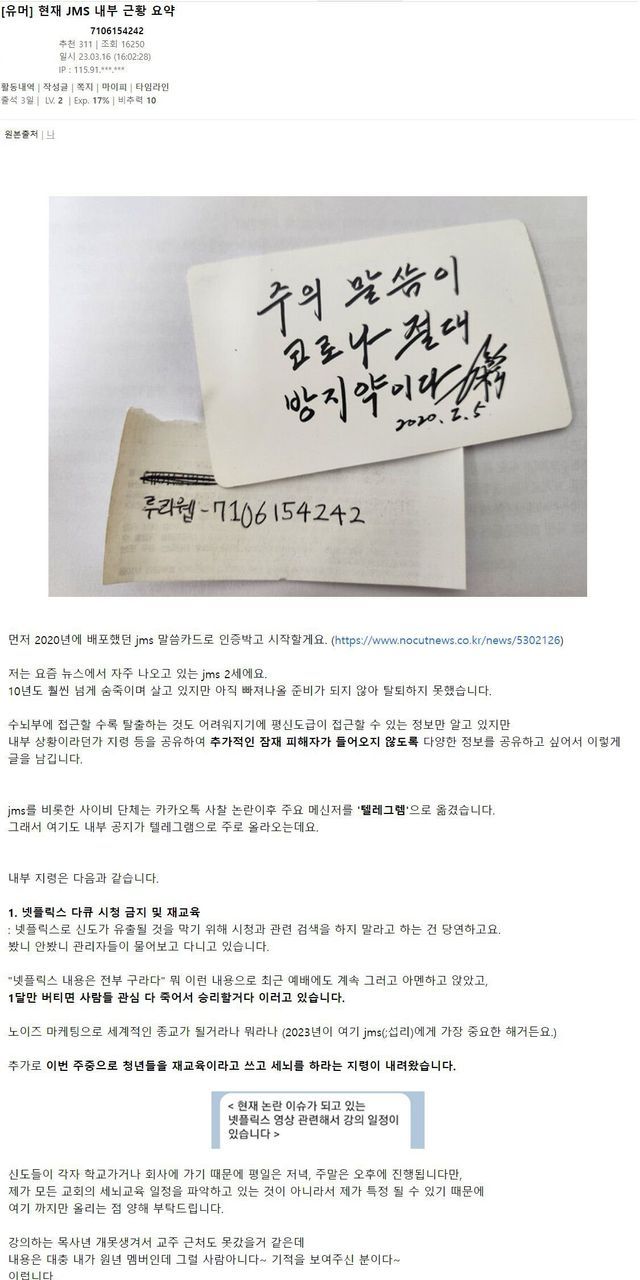 [유머] 현재 JMS 내부 근황 요약
7106154242
추천 311 | 조회 16250
일시 23.03.16 (16:02:28)
IP : 115.91.***.***
활동내역 | 작성글 | 쪽지 | 마이피 | 타임라인
출석 3일 | LV. 2 | Exp. 17% | 비추력 10
원본출처 | 나
주의 말씀이
코로나 절대
방지약이다
2020. 2. 5
루리웹 - 7106154242
먼저 2020년에 배포했던 jms 말씀카드로 인증박고 시작할게요. (https://www.nocutnews.co.kr/news/5302126)
저는 요즘 뉴스에서 자주 나오고 있는 jms 2세에요.
10년도 훨씬 넘게 숨죽이며 살고 있지만 아직 빠져나올 준비가 되지 않아 탈퇴하지 못했습니다.
수뇌부에 접근할 수록 탈출하는 것도 어려워지기에 평신도급이 접근할 수 있는 정보만 알고 있지만
내부 상황이라던가 지령 등을 공유하여 추가적인 잠재 피해자가 들어오지 않도록 다양한 정보를 공유하고 싶어서 이렇게
글을 남깁니다.
jms를 비롯한 사이비 단체는 카카오톡 사찰 논란이후 주요 메신저를 '텔레그렘'으로 옮겼습니다.
그래서 여기도 내부 공지가 텔레그램으로 주로 올라오는데요.
내부 지령은 다음과 같습니다.
1. 넷플릭스 다큐 시청 금지 및 재교육
: 넷플릭스로 신도가 유출될 것을 막기 위해 시청과 관련 검색을 하지 말라고 하는 건 당연하고요.
봤니 안봤니 관리자들이 물어보고 다니고 있습니다.
"넷플릭스 내용은 전부 구라다" 뭐 이런 내용으로 최근 예배에도 계속 그러고 아멘하고 앉았고,
1달만 버티면 사람들 관심 다 죽어서 승리할거다 이러고 있습니다.
노이즈 마케팅으로 세계적인 종교가 될거라나 뭐라나 (2023년이 여기 jms(;섭리)에게 가장 중요한 해거든요.)
추가로 이번 주중으로 청년들을 재교육이라고 쓰고 세뇌를 하라는 지령이 내려왔습니다.
< 현재 논란 이슈가 되고 있는
넷플릭스 영상 관련해서 강의 일정이
있습니다 >
신도들이 각자 학교가거나 회사에 가기 때문에 평일은 저녁, 주말은 오후에 진행됩니다만,
제가 모든 교회의 세뇌교육 일정을 파악하고 있는 것이 아니라서 제가 특정 될 수 있기 때문에
여기 까지만 올리는 점 양해 부탁드립니다.
강의하는 목사년 개못생겨서 교주 근처도 못갔을거 같은데
내용은 대충 내가 원년 멤버인데 그럴 사람아니다~ 기적을 보여주신 분이다~
이럽니다